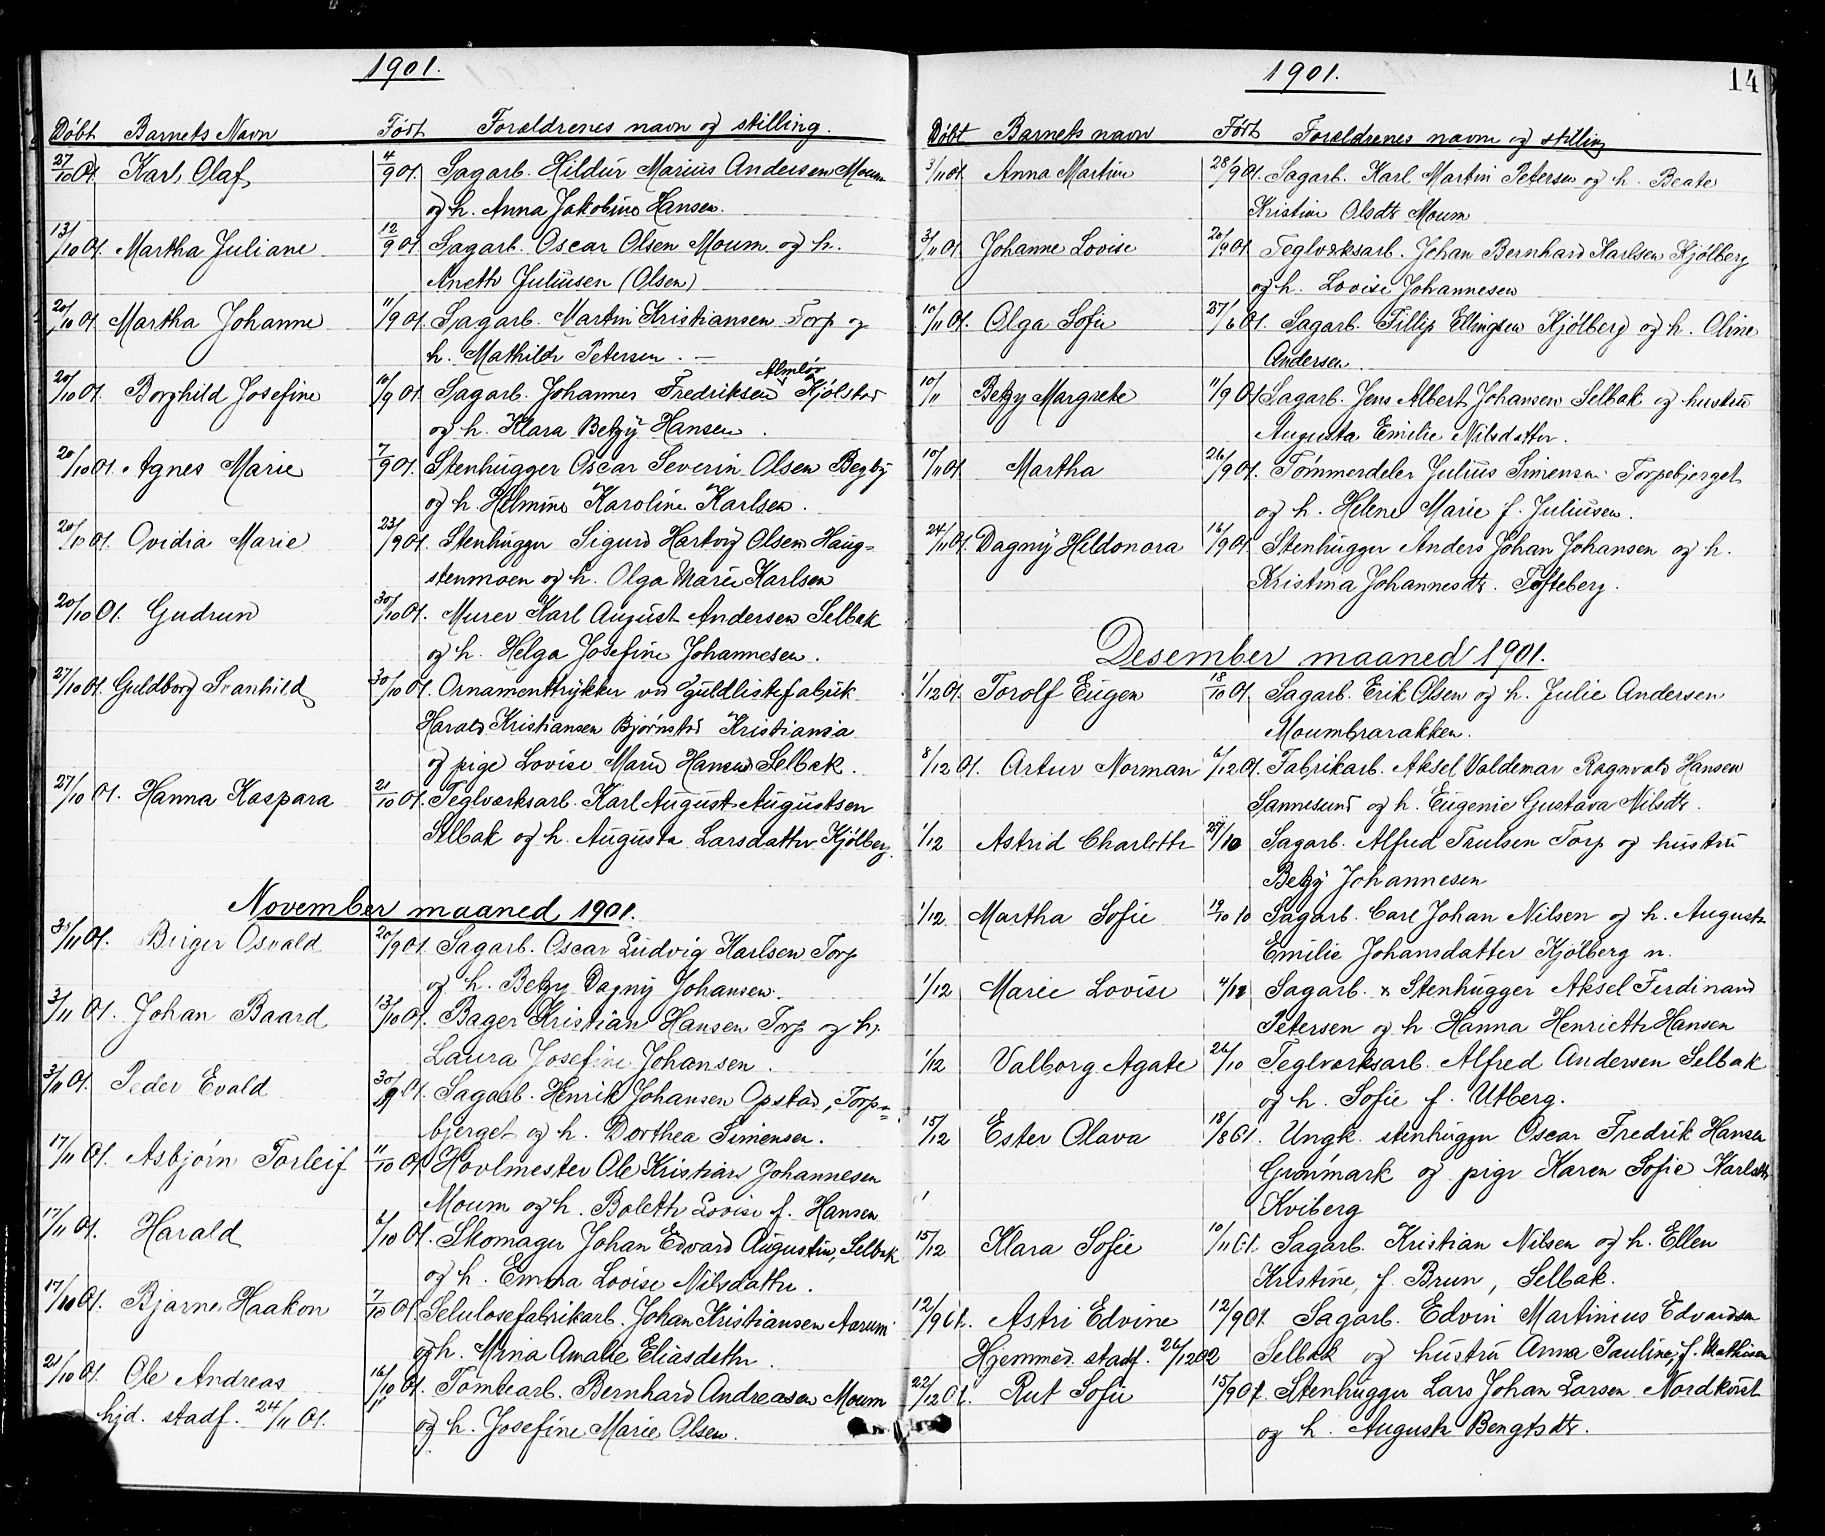 1901.
Døbt Barnets Navn Født Forældrenes navn og stilling.
27/10 01. Karl Olaf 4/9 01. Sagarb. Hildur Marius Andersen Moum
og h. Anna Jakobine Hansen.
13/10 01. Martha Juliane 12/9 01. Sagarb. Oscar Olsen Moum og h.
Anette Juliusen (Olsen)
20/10 01. Martha Johanne 11/9 01. Sagarb. Martin Kristiansen Torp og
h. Mathilde Petersen. —
Almlöv
20/10 01. Borghild Josefine 10/9 01. Sagarb. Johannes Fredriksen Kjölstad
og h. Klara Betzy Hansen.
20/10 01. Agnes Marie 7/9 01. Stenhugger Oscar Severin Olsen Begby
og h. Helmine Karoline Karlsen.
20/10 01. Ovidia Marie 23/9 01. Stenhugger Sigurd Hartvig Olsen Haug-
stenmoen og h. Olga Marie Karlsen
20/10 01. Gudrun 30/10 01. Murer Karl August Andersen Selbak
og h. Helga Josefine Johannesen.
27/10 01. Guldborg Svanhild 30/10 01. Ornamenttrykker ved Guldlistefabrik
Harald Kristiansen Bjørnstad Kristiania
og pige Lovise Marie Hansen Selbak.
27/10 01. Hanna Kaspara 21/10 01. Teglværksarb. Karl August Augustsen
Selbak og h. Augusta Larsdatter Kjölberg.
November maaned 1901.
3/11 01. Birger Osvald 20/9 01. Sagarb. Oscar Ludvig Karlsen Torp
og h. Betzy Dagny Johansen.
3/11 01. Johan Baard 13/10 01. Bager Kristian Hansen Torp og h.
Laura Josefine Johansen.
3/11 01. Peder Evald 30/9 01. Sagarb. Henrik Johansen Opstad, Torp-
bjerget og h. Dorthea Simensen.
17/11 01. Asbjørn Torleif 11/10 01. Hovlmester Ole Kristian Johannesen
Moum og h. Bolette Lovise f. Hansen
17/11 01. Harald 6/10 01. Skomager Johan Edvard Augustin, Selbak
og h. Emma Lovise Nilsdatter.
17/10 01. Bjarne Haakon 7/10 01. Selulosefabrikarb. Johan Kristiansen Aarum
og h. Mina Amalie Eliasdatter.
21/10 01. Ole Andreas 16/10 01. Tomtearb. Bernhard Andreasen Moum
hjd. stadf. 24/11 01. og h. Josefine Marie Olsen.
1901. 14
Døbt Barnets navn Født Forældrenes navn og stilling
3/11 01. Anna Martine 28/9 01. Sagarb. Karl Martin Petersen og h. Beate
Kristine Olsdtr Moum
3/11 01. Johanne Lovise 20/9 01. Teglværksarb. Johan Bernhard Karlsen Kjölberg
og h. Lovise Johannesen
10/11 01. Olga Sofie 27/6 01. Sagarb. Fillip Ellingsen Kjölberg og h. Oline
Andersen.
10/11 Betzy Margrete 11/9 01 Sagarb. Jens Albert Johansen Selbak og hustru
Augusta Emilie Nilsdatter.
10/11 01. Martha 26/9 01. Tömmerdeler Julius Simensen Torpebjerget
og h. Helene Marie f. Juliusen.
24/11 01. Dagny Hildonora 16/9 01. Stenhugger Anders Johan Johansen og h.
Kristina Johannesdtr. Tofteberg.
Desember maaned 1901.
1/12 01. Torolf Eugen 18/10 01. Sagarb. Erik Olsen og h. Julie Andersen
Moumbrarakken.
8/12 01. Artur Norman 6/12 01. Fabrikarb. Aksel Valdemar Ragnvald Hansen
Sannesund og h. Eugenie Gustava Nilsdtr.
1/12 Astrid Charlotte 27/10 Sagarb. Alfred Trulsen Torp og hustru
Betzy Johannesen
1/12. Martha Sofie 19/10 10 Sagarb. Carl Johan Nilsen og h. Augusta
Emilie Johansdatter Kjölberg n.
1/12 Marie Lovise 4/11 Sagarb. & Stenhugger Aksel Ferdinand
Petersen og h. Hanna Henriette Hansen
1/12 Valborg Agate 26/10 Teglværksarb. Alfred Andersen Selbak
og h. Sofie f. Utberg.
15/12 Ester Olava 18/8 01. Ungk. stenhugger Oscar Fredrik Hansen
Grønmark og pige Karen Sofie Karlsdtr
Kviberg
15/12 Klara Sofie 10/11 01. Sagarb. Kristian Nilsen og h. Ellen
Kristine, f. Brun, Selbak.
12/9 01. Astri Edvine 12/9 01. Sagarb. Edvin Martinius Edvardsen
Hjemmed. stadf. 26/12 02 Selbak og hustru Anna Pauline, f. Mathisen
22/12 01. Rut Sofie 15/9 01. Stenhugger Lars Johan Larsen Nordkvist
og h. Augusta Bengtsdtr.